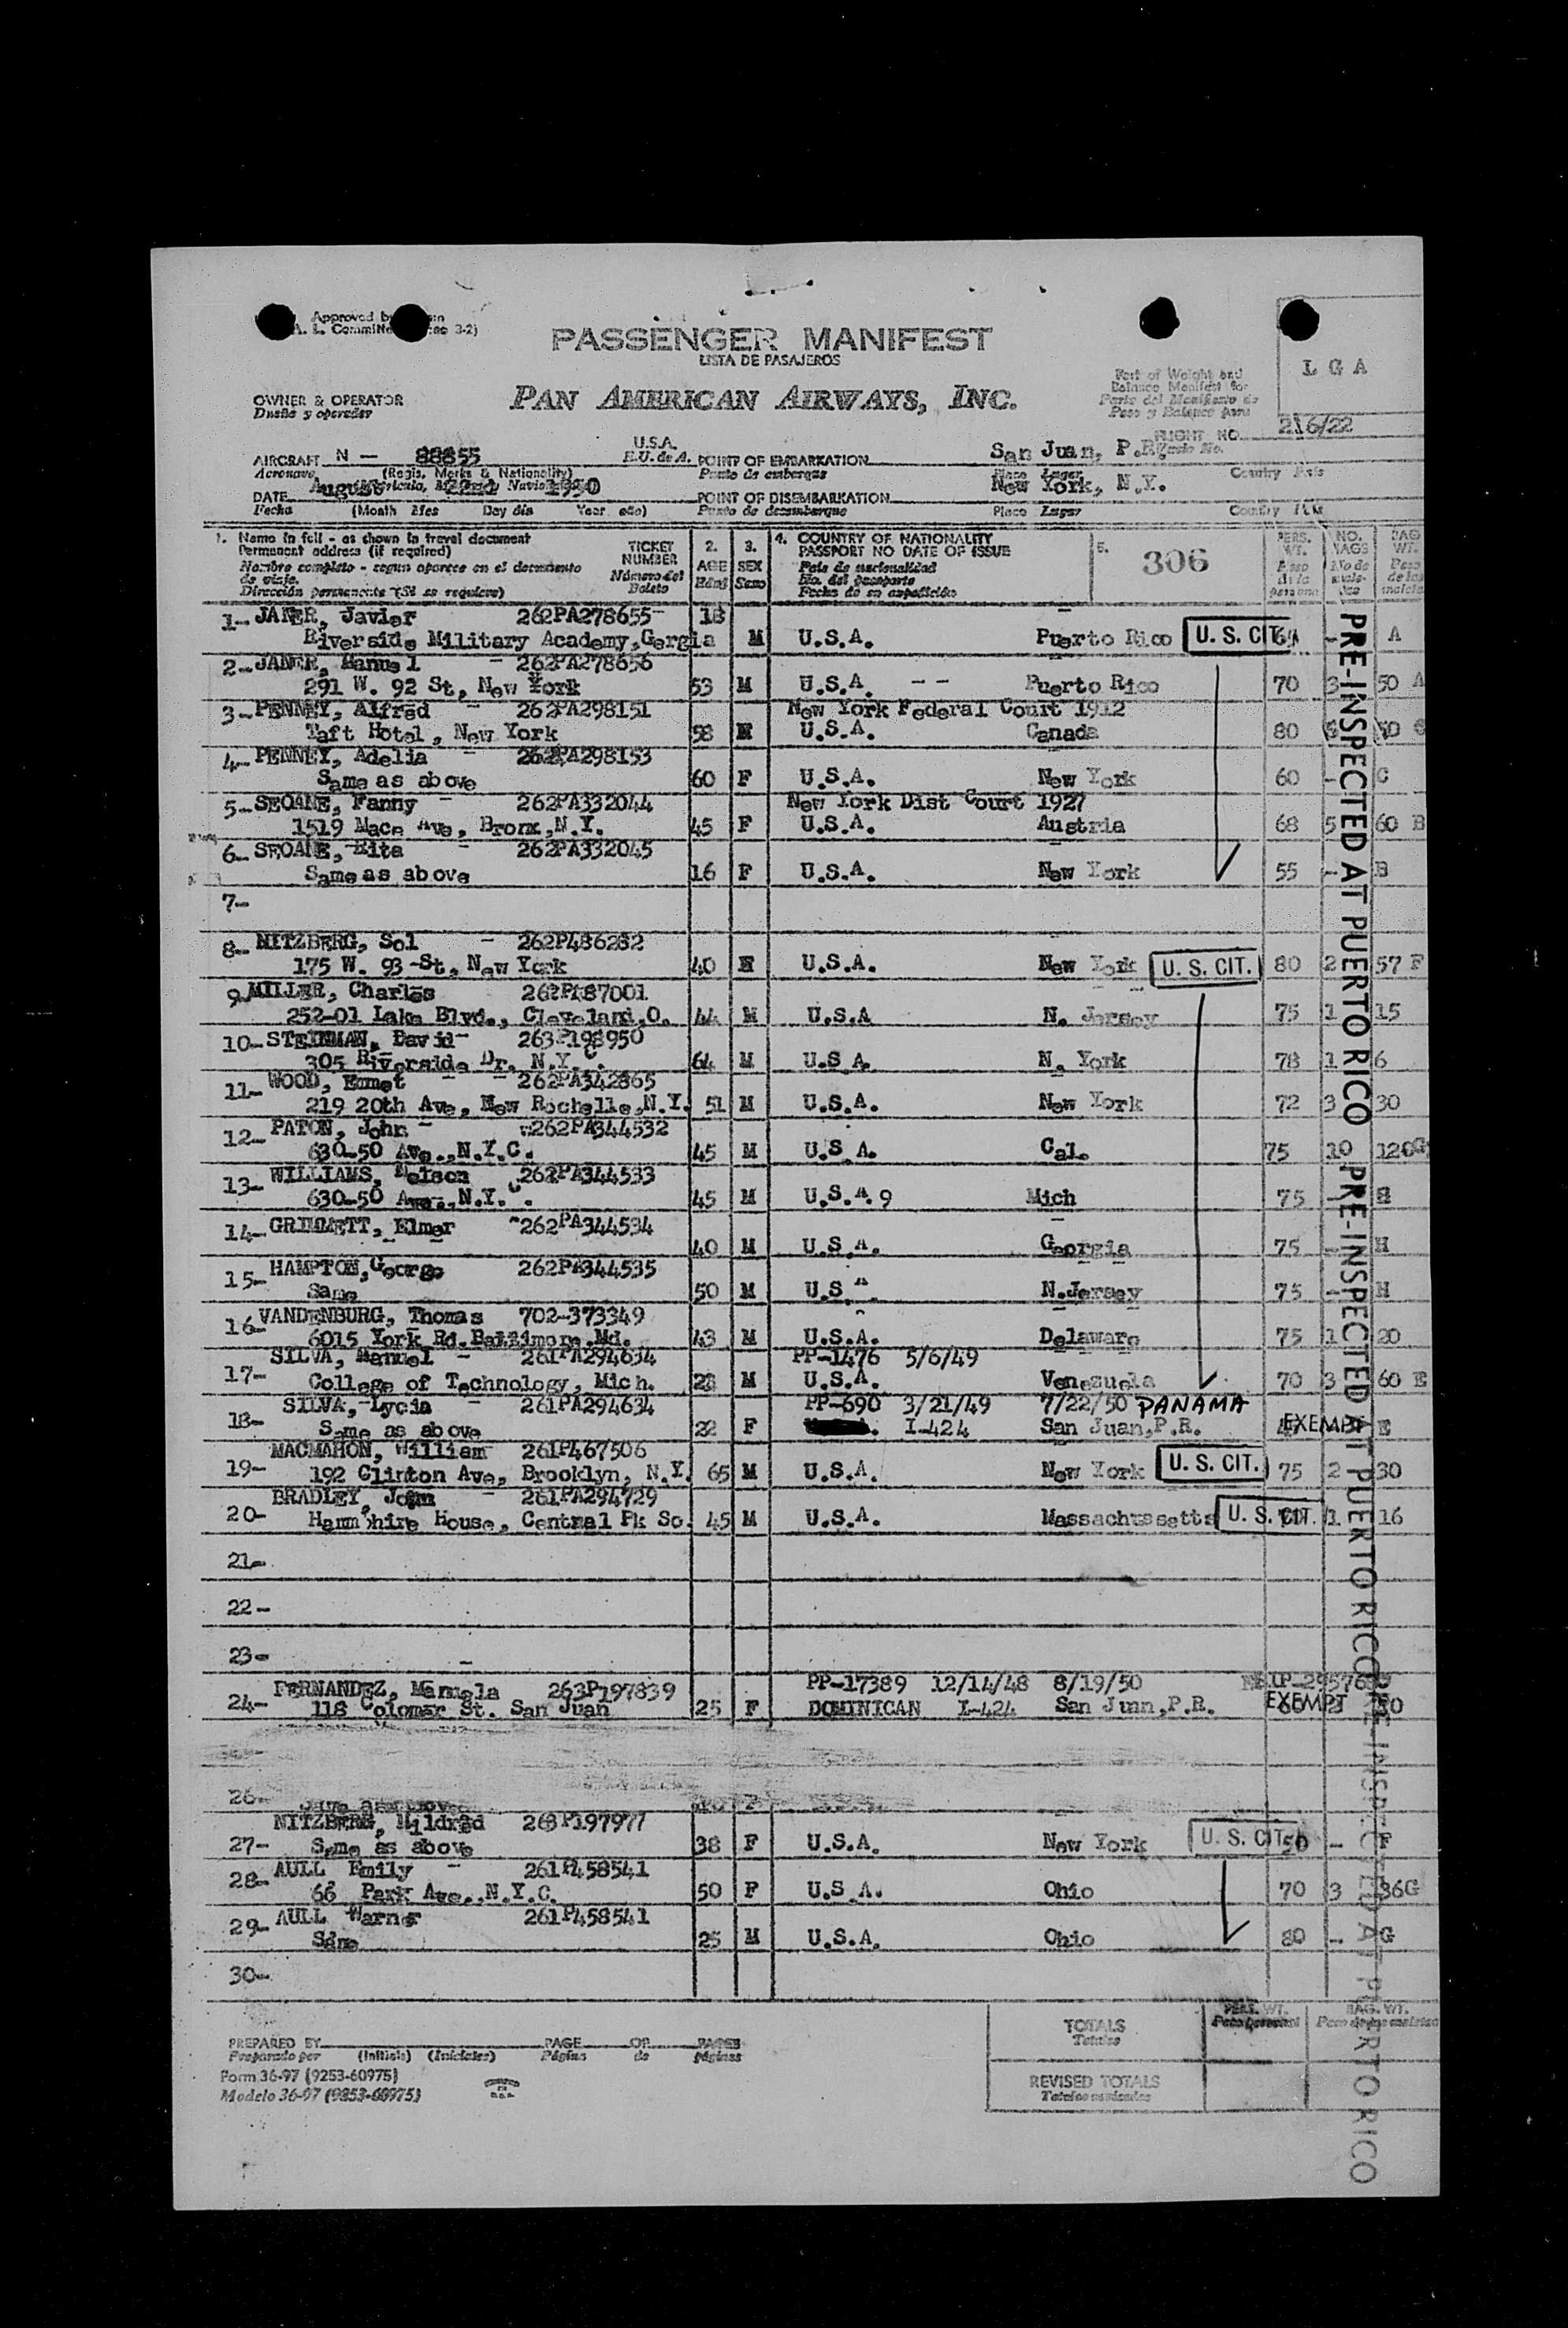 Approved by
A. L. Committee 3-2)
PASSENGER MANIFEST
LISTA DE PASAJEROS
L G A
Part of Weight and
Balance Manifest for
Parte del Manifiesto de
Peso y Balance para
OWNER & OPERATOR
Dueño y operador
PAN AMERICAN AIRWAYS, INC.
FLIGHT NO. 216/22
AIRCRAFT N - 88855 U.S.A.
Aeronave (Regis. Marks & Nationality) E.U. de A.
POINT OF EMBARKATION San Juan, P.R.
Punto de embarque Place Lugar Country País
DATE August 22nd 1950
Fecha (Month Mes Day día Year año)
POINT OF DISEMBARKATION New York, N.Y.
Punto de desembarque Place Lugar Country País
1. Name in full - as shown in travel document
Permanent address (if required)
Nombre completo - segun aparece en el documento
de viaje.
Dirección permanente (Si se requiere)
TICKET
NUMBER
Número del
Boleto
2.
AGE
Edad
3.
SEX
Sexo
4. COUNTRY OF NATIONALITY
PASSPORT NO DATE OF ISSUE
País de nacionalidad
No. del pasaporte
Fecha de su expedición
5. 306
PERS. WT.
NO. BAGS
BAG WT.
1- JANER, Javier 262PA278655- 18
Riverside Military Academy,Gergia M U.S.A. Puerto Rico U. S. CIT. - A
2- JANER, Manuel - 262PA278656
291 W. 92 St, New York 53 M U.S.A. -- Puerto Rico 70 3 50 A
3- PENNEY, Alfred - 262PA298151 New York Federal Court 1912
Taft Hotel, New York 58 M U.S.A. Canada 80
4- PENNEY, Adelia - 262PA298153
Same as above 60 F U.S.A. New York 60 - C
5- SEOANE, Fanny - 262PA332044 New York Dist Court 1927
1519 Mace Ave, Bronx,N.Y. 45 F U.S.A. Austria 68 5 60 B
6- SEOANE, Rita - 262PA332045
Same as above 16 F U.S.A. New York 55 - B
7-
8- NITZBERG, Sol - 262P486282
175 W. 93-St, New York 40 M U.S.A. New York U. S. CIT. 80 2 57 F
9 MILLER, Charles 262P187001
252-01 Lake Blvd., Cleveland,O. 44 M U.S.A N. Jersey 75 1 15
10- STEINMAN, David- 263P198950
305 Riverside Dr. N.Y.C. 64 M U.S.A. N. York 78 1 6
11- WOOD, Emmet - 262PA342865
219 20th Ave, New Rochelle,N.Y. 51 M U.S.A. New York 72 3 30
12- PATON, John - 262PA344532
630-50 Ave.,N.Y.C. 45 M U.S.A. Cal. 75 10 120G
13- WILLIAMS, Nelson 262PA344533
630-50 Ave.,N.Y.C. 45 M U.S.A.9 Mich 75 - H
14- GRIMMETT, Elmer 262PA344534
40 M U.S.A. Georgia 75 - H
15- HAMPTON,George 262PA344535
Same 50 M U.S.A. N.Jersey 75 - H
16- VANDENBURG, Thomas 702-373349
6015 York Rd.Baltimore,Md. 43 M U.S.A. Delaware 75 1 20
17- SILVA, Manuel - 261PA294634 PP-1476 5/6/49
College of Technology, Mich. 28 M U.S.A. Venezuela 70 3 60 E
18- SILVA,-Lycia - 261PA294634 PP-690 3/21/49 7/22/50 PANAMA
Same as above 22 F I-424 San Juan,P.R. EXEMPT E
19- MACMAHON, William 261P467506
192 Clinton Ave, Brooklyn, N.Y. 65 M U.S.A. New York U. S. CIT. 75 2 30
20- BRADLEY, John - 261PA294729
Hampshire House, Central Pk So. 45 M U.S.A. Massachussetts U. S. CIT. 1 16
21-
22-
23-
24- FERNANDEZ, Manuela 263P197839 PP-17389 12/14/48 8/19/50
118 Colomar St. San Juan 25 F DOMINICAN I-424 San Juan,P.R. EXEMPT
26-
27- NITZBERG, Mildred 263P197977
Same as above 38 F U.S.A. New York U. S. CIT. 50 - F
28- AULL Emily - 261P458541
66 Park Ave.,N.Y.C. 50 F U.S.A. Ohio 70 3 36G
29- AULL Warner 261P458541
Same 25 M U.S.A. Ohio 80 - G
30-
PRE-INSPECTED AT PUERTO RICO PRE-INSPECTED AT PUERTO RICO PRE-INSPECTED AT PUERTO RICO
TOTALS
Totales
PERS. WT.
Peso personal
BAG. WT.
REVISED TOTALS
PREPARED BY PAGE OF PAGES
Preparado por (Initials) (Iniciales) Página de páginas
Form 36-97 (9253-60975)
Modelo 36-97 (9253-60975)